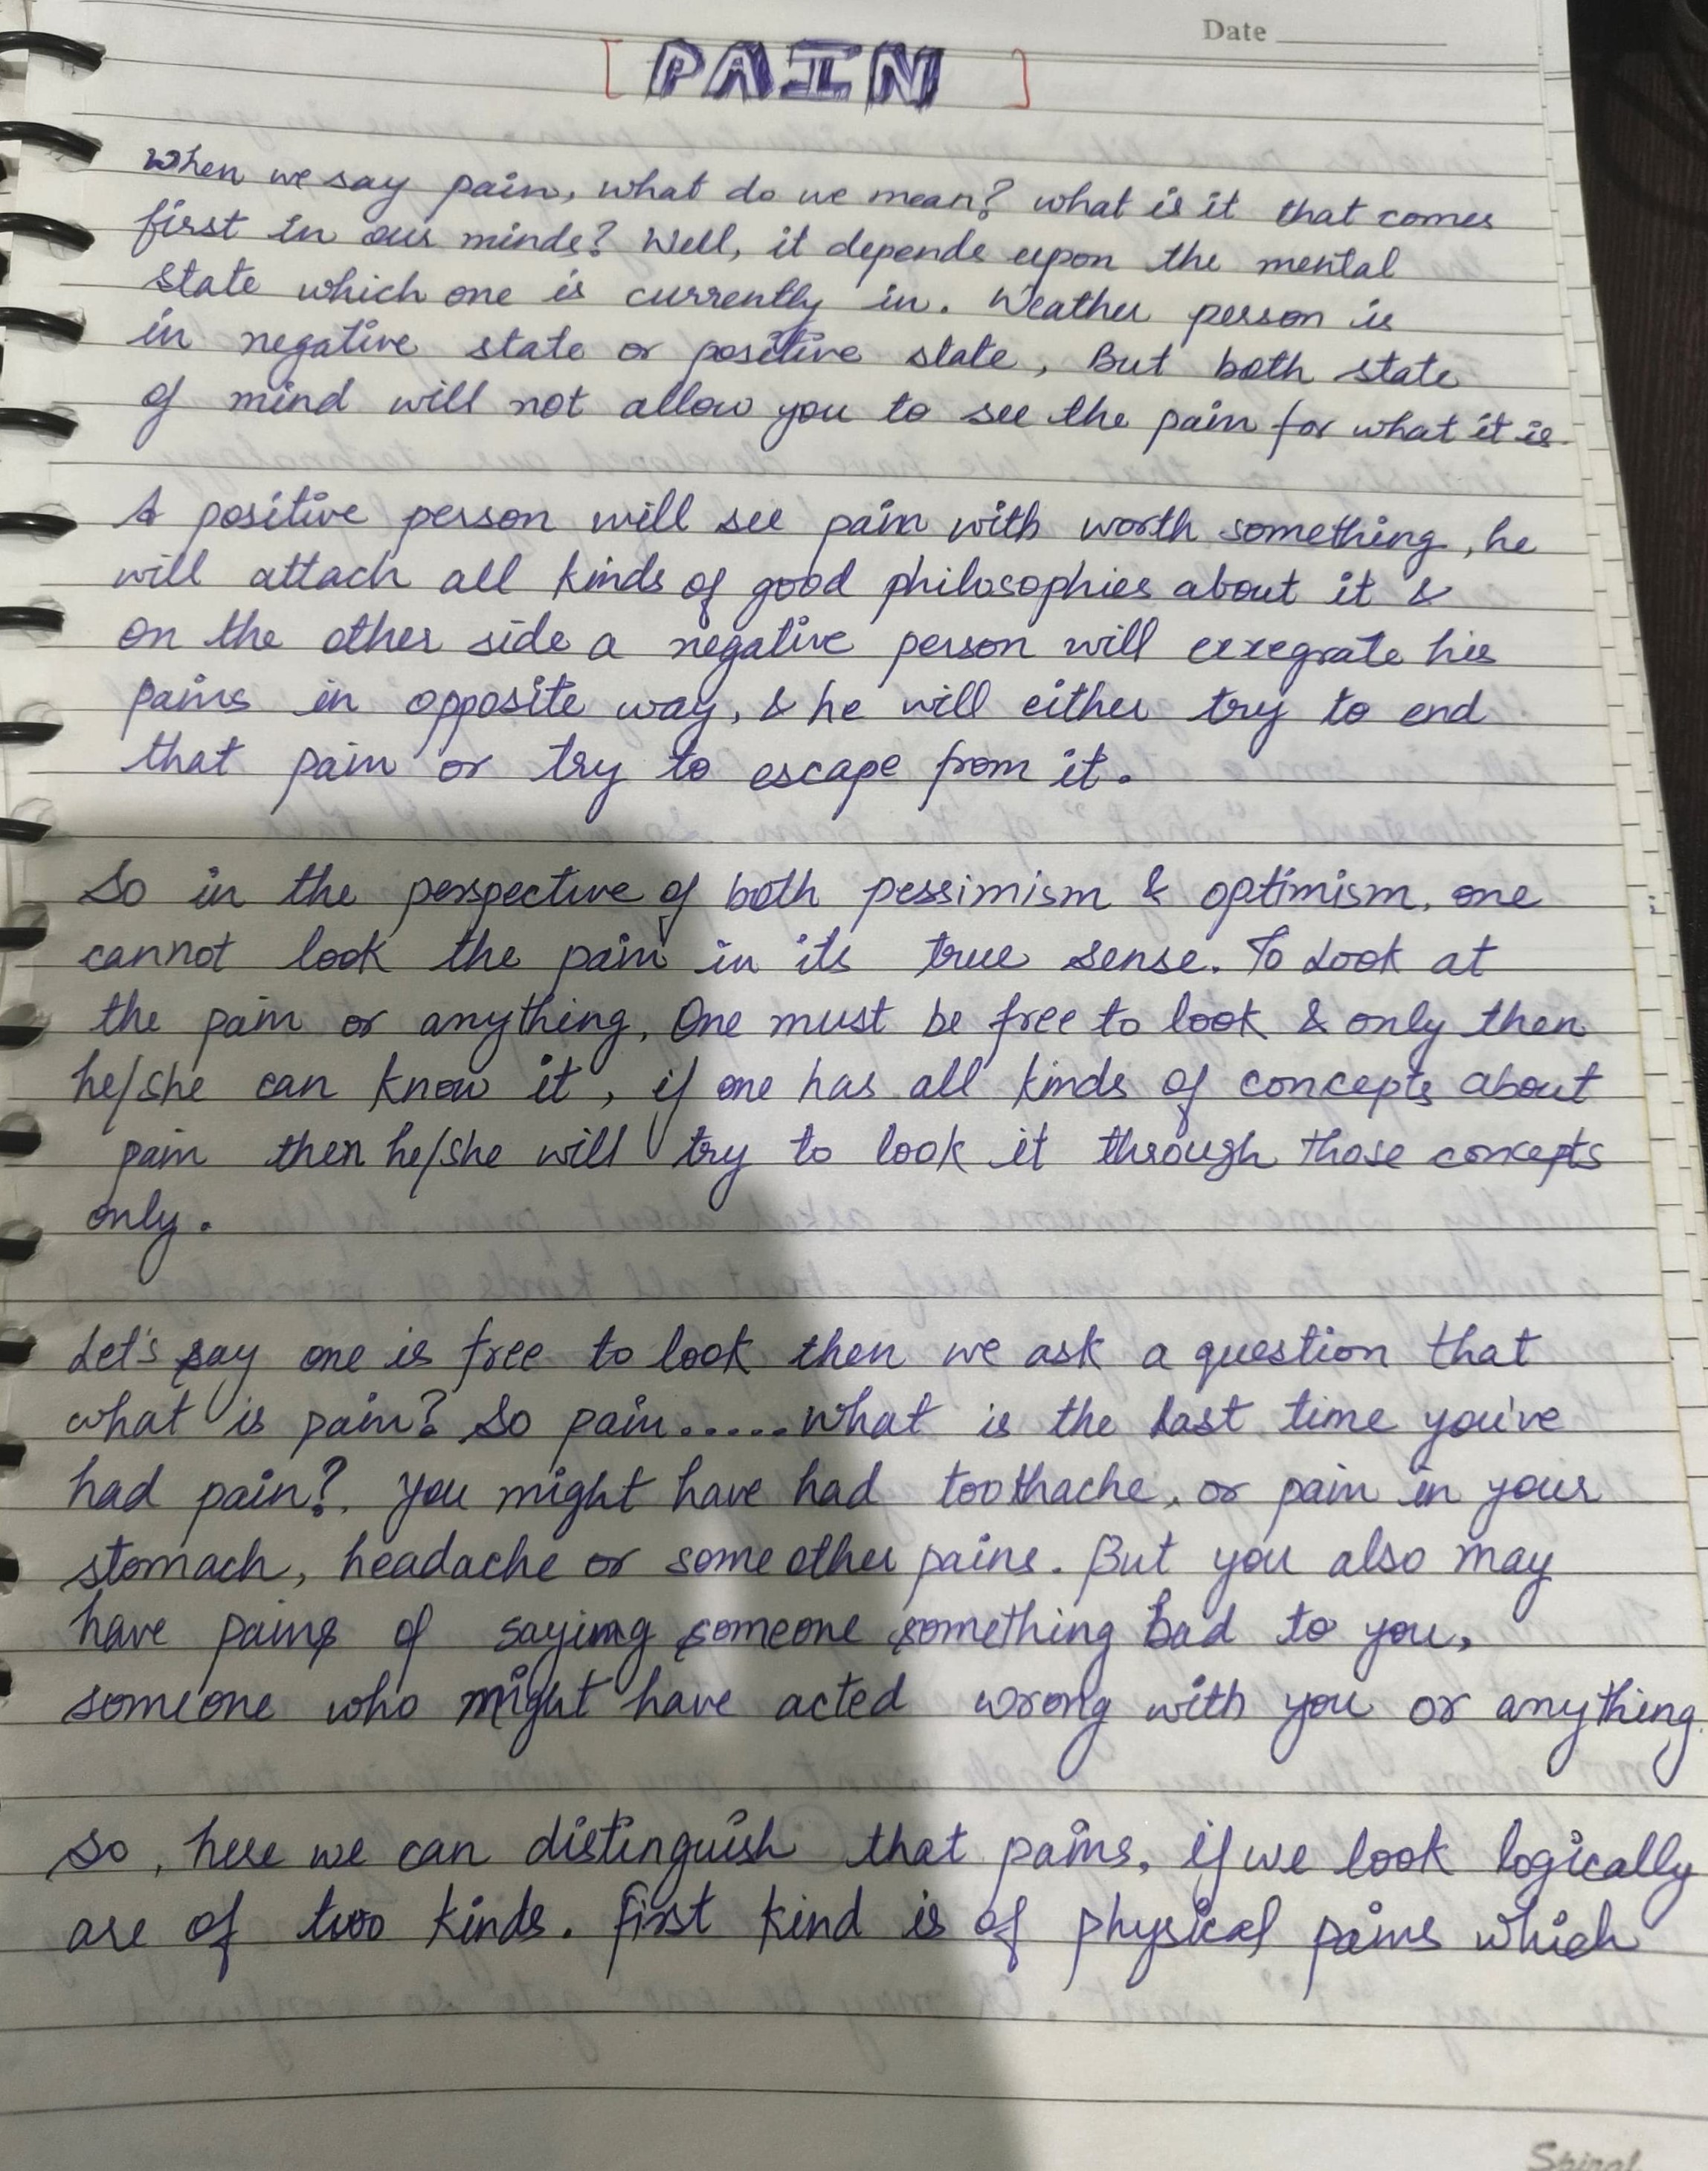 Date
[ PAIN ]
When we say pain, what do we mean? what is it that comes
first in our minds? Well, it depends upon the mental
state which one is currently in. Weather person is
in negative state or positive state, But both state
of mind will not allow you to see the pain for what it is.
A positive person will see pain with worth something, he
will attach all kinds of good philosophies about it &
on the other side a negative person will exegrate his
pains in opposite way, & he will either try to end
that pain or try to escape from it.
So in the perspective of both pessimism & optimism, one
cannot look the pain in its true sense. To Look at
the pain or anything, One must be free to look & only then
he/she can know it, if one has all kinds of concepts about
pain then he/she will try to look it through those concepts
only.
Let's say one is free to look then we ask a question that
what is pain? So pain.....what is the last time you've
had pain?. You might have had toothache, or pain in your
stomach, headache or some other pains. But you also may
have pains of saying someone something bad to you,
someone who might have acted wrong with you or anything.
So, here we can distinguish that pains, if we look logically
are of two kinds. First kind is of physical pains which
Spiral